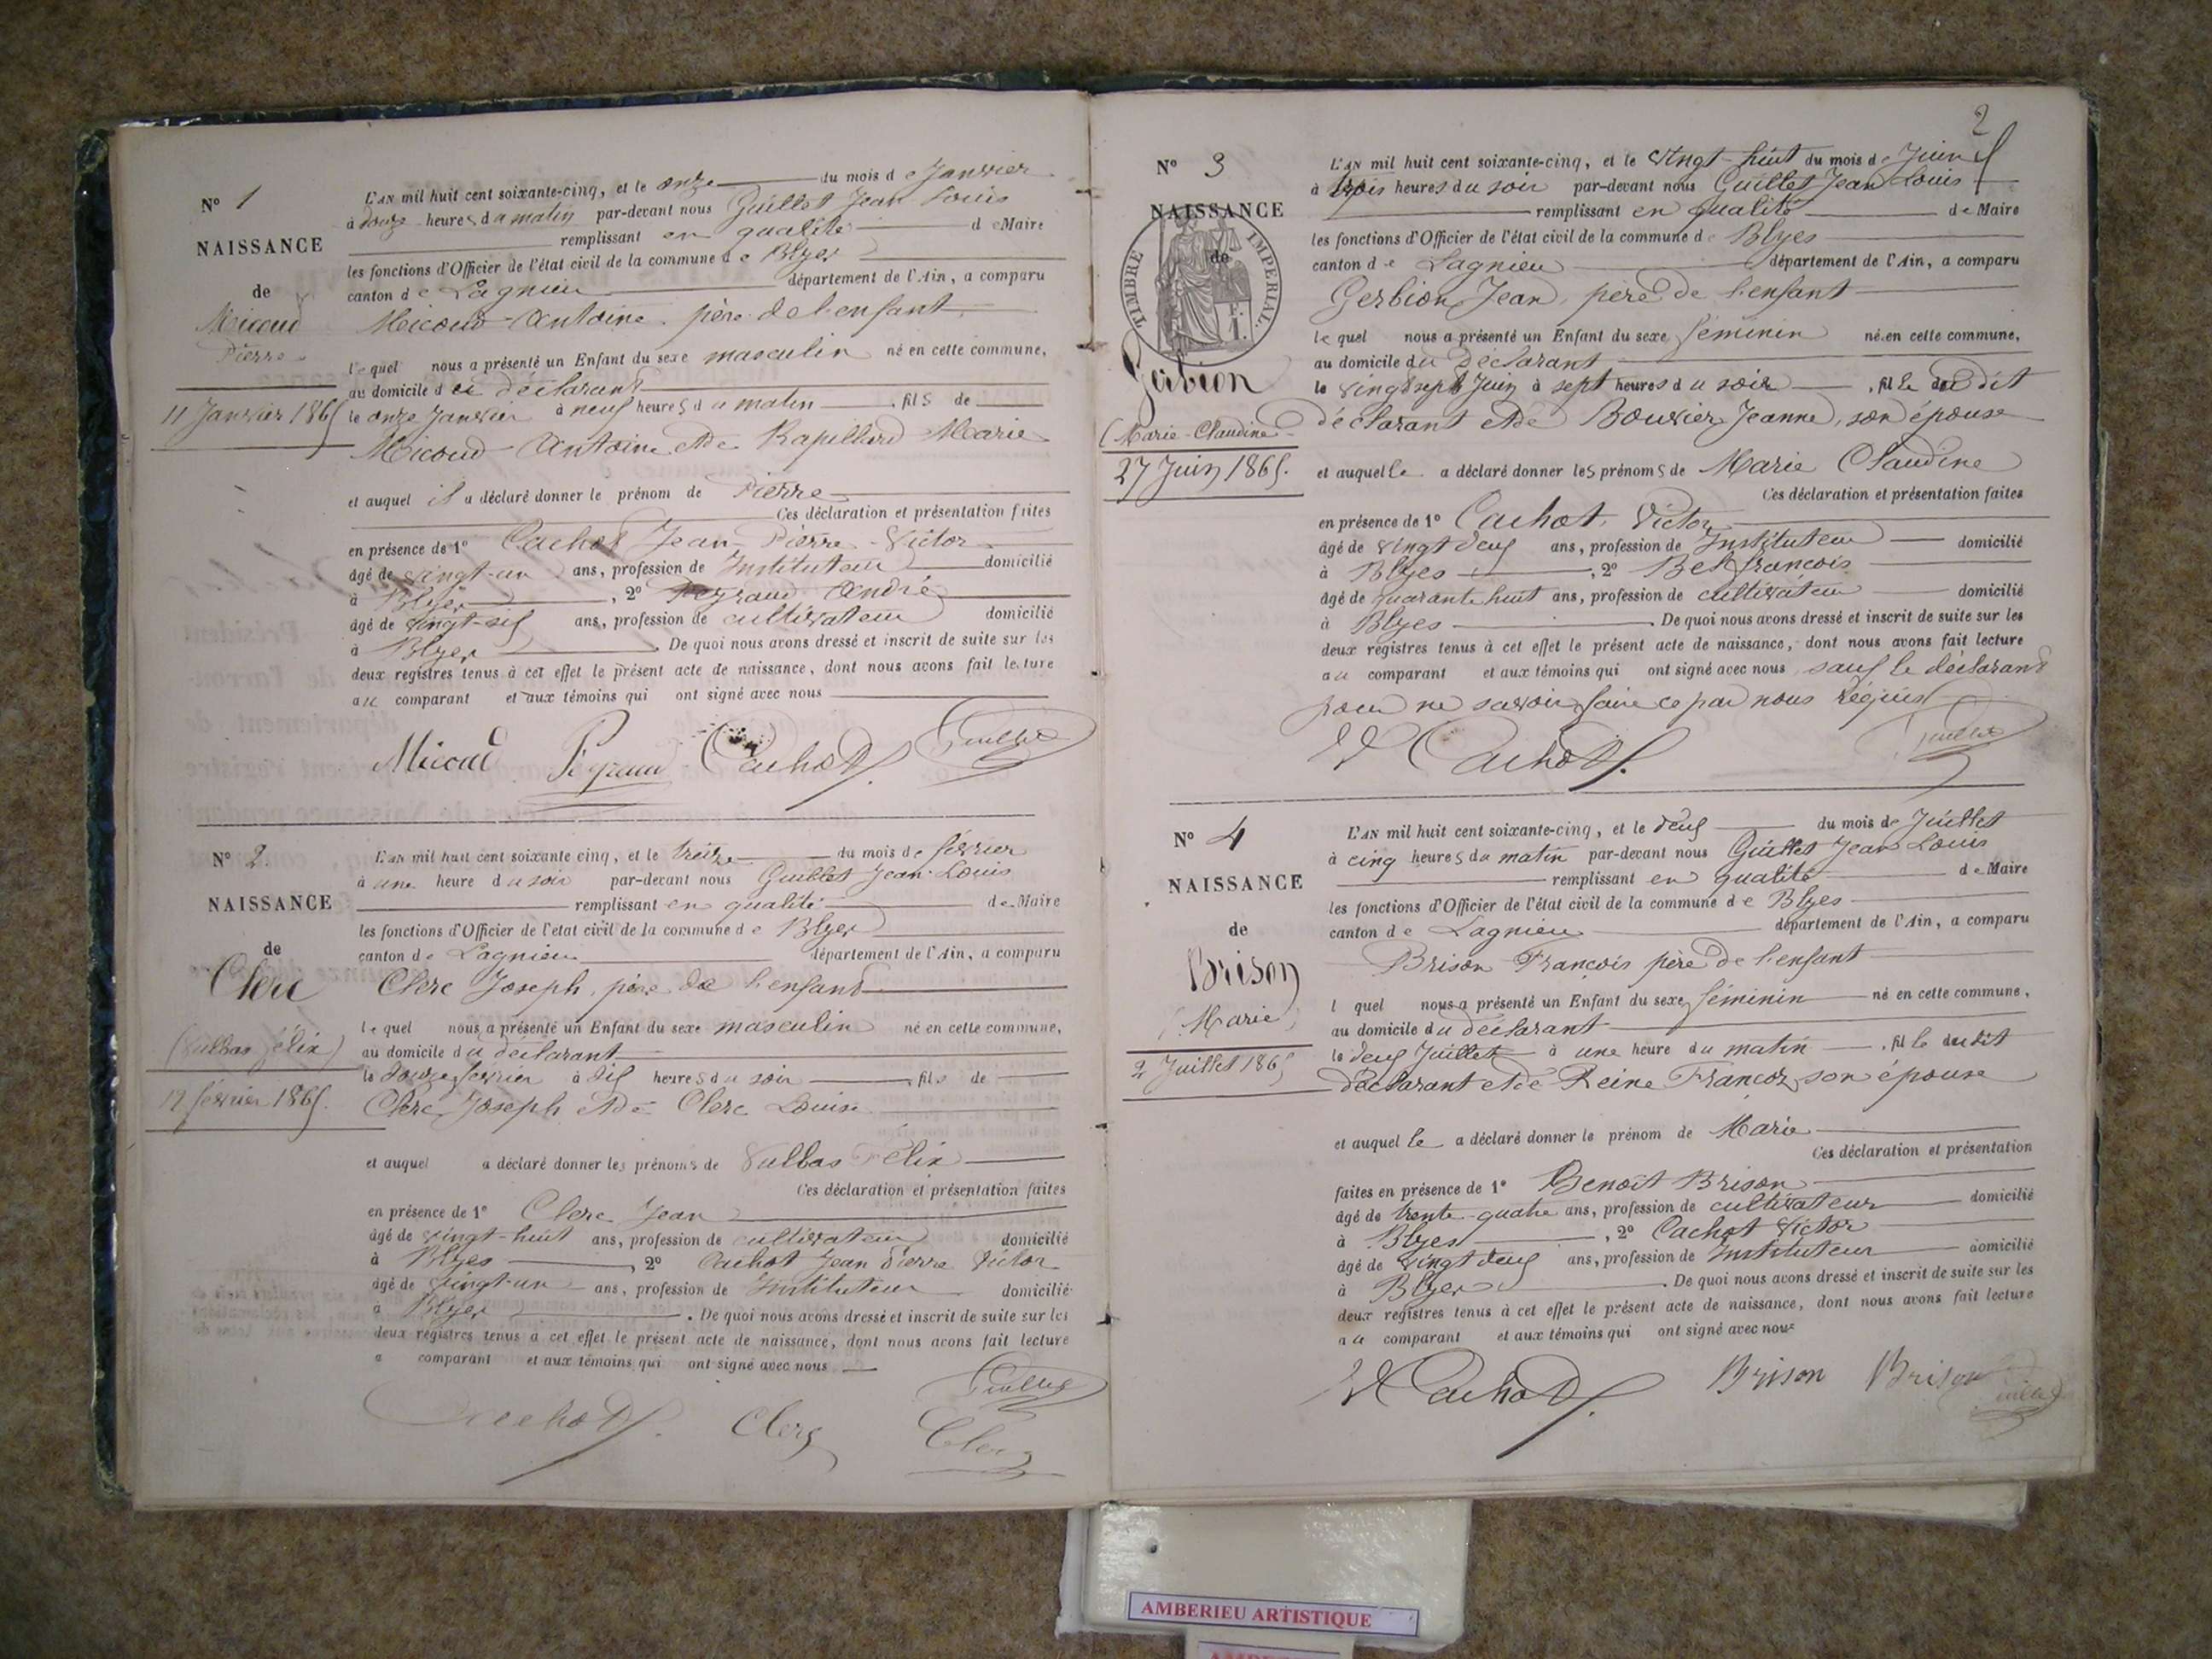 N° 1
NAISSANCE
de
Micoud
Pierre
11 Janvier 1865
L'AN mil huit cent soixante-cinq, et le onze du mois de Janvier
à douze heures du matin par-devant nous Guillet Jean Louis
remplissant en qualité de Maire
les fonctions d'Officier de l'état civil de la commune de Blyes
canton de Lagnieu département de l'Ain, a comparu
Micoud Antoine père de l'enfant
lequel nous a présenté un Enfant du sexe masculin né en cette commune,
au domicile du déclarant
le onze Janvier à neuf heures du matin, fils de
Micoud Antoine et de Rapillard Marie
et auquel il a déclaré donner le prénom de Pierre
Ces déclaration et présentation faites
en présence de 1° Cachot Jean-Pierre-Victor
âgé de vingt-un ans, profession de Instituteur domicilié
à Blyes, 2° Peyraud André
âgé de vingt-six ans, profession de cultivateur domicilié
à Blyes. De quoi nous avons dressé et inscrit de suite sur les
deux registres tenus à cet effet le présent acte de naissance, dont nous avons fait lecture
au comparant et aux témoins qui ont signé avec nous
Micoud Pégraud Cachot Guillet
N° 2.
NAISSANCE
de
Clerc
(Vulbas Félix)
12 février 1865.
L'AN mil huit cent soixante cinq, et le treize du mois de février
à une heure du soir par-devant nous Guillet Jean-Louis
remplissant en qualité de Maire
les fonctions d'Officier de l'état civil de la commune de Blyes
canton de Lagnieu département de l'Ain, a comparu
Clerc Joseph, père de l'enfant
lequel nous a présenté un Enfant du sexe masculin né en cette commune,
au domicile du déclarant
le douze février à dix heures du soir, fils de
Clerc Joseph et de Clerc Louise
et auquel a déclaré donner les prénoms de Vulbas Félix
Ces déclaration et présentation faites
en présence de 1° Clerc Jean
âgé de vingt-huit ans, profession de cultivateur domicilié
à Blyes, 2° Cachot Jean Pierre Victor
âgé de vingt-un ans, profession de Instituteur domicilié
à Blyes. De quoi nous avons dressé et inscrit de suite sur les
deux registres tenus à cet effet le présent acte de naissance, dont nous avons fait lecture
a comparant et aux témoins qui ont signé avec nous
Guillet
Cachot. Clerc Clerc
2
N° 3
NAISSANCE
de
TIMBRE IMPERIAL.
Gerbion
(Marie-Claudine)
27 Juin 1865.
L'AN mil huit cent soixante-cinq, et le vingt-huit du mois de Juin
à trois heures du soir par-devant nous Guillet Jean Louis
remplissant en qualité de Maire
les fonctions d'Officier de l'état civil de la commune de Blyes
canton de Lagnieu département de l'Ain, a comparu
Gerbion Jean, père de l'enfant
lequel nous a présenté un Enfant du sexe féminin né en cette commune,
au domicile du Déclarant
le vingt sept Juin à sept heures du soir, fille dudit
déclarant et de Bouvier Jeanne, son épouse
et auquelle a déclaré donner les prénoms de Marie Claudine
Ces déclaration et présentation faites
en présence de 1° Cachot, Victor
âgé de vingt deux ans, profession de Instituteur domicilié
à Blyes, 2° Bel françois
âgé de quarante huit ans, profession de cultivateur domicilié
à Blyes. De quoi nous avons dressé et inscrit de suite sur les
deux registres tenus à cet effet le présent acte de naissance, dont nous avons fait lecture
au comparant et aux témoins qui ont signé avec nous sauf le déclarant
pour ne savoir faire ce par nous requis
V Cachot. Guillet
N° 4
NAISSANCE
de
Brison
(Marie)
2 Juillet 1865
L'AN mil huit cent soixante-cinq, et le deux du mois de Juillet
à cinq heures du matin par-devant nous Guillet Jean Louis
remplissant en qualité de Maire
les fonctions d'Officier de l'état civil de la commune de Blyes
canton de Lagnieu département de l'Ain, a comparu
Brison François père de l'enfant
l quel nous a présenté un Enfant du sexe féminin né en cette commune,
au domicile du déclarant
le deux Juillet à une heure du matin, fille dudit
déclarant et de Reine Françoz, son épouse
et auquelle a déclaré donner le prénom de Marie
Ces déclaration et présentation
faites en présence de 1° Benoît Brison
âgé de trente-quatre ans, profession de cultivateur domicilié
à Blyes, 2° Cachot Victor
âgé de vingt deux ans, profession de Instituteur domicilié
à Blyes. De quoi nous avons dressé et inscrit de suite sur les
deux registres tenus à cet effet le présent acte de naissance, dont nous avons fait lecture
au comparant et aux témoins qui ont signé avec nous
V Cachot. Brison Brison Guillet
AMBERIEU ARTISTIQUE